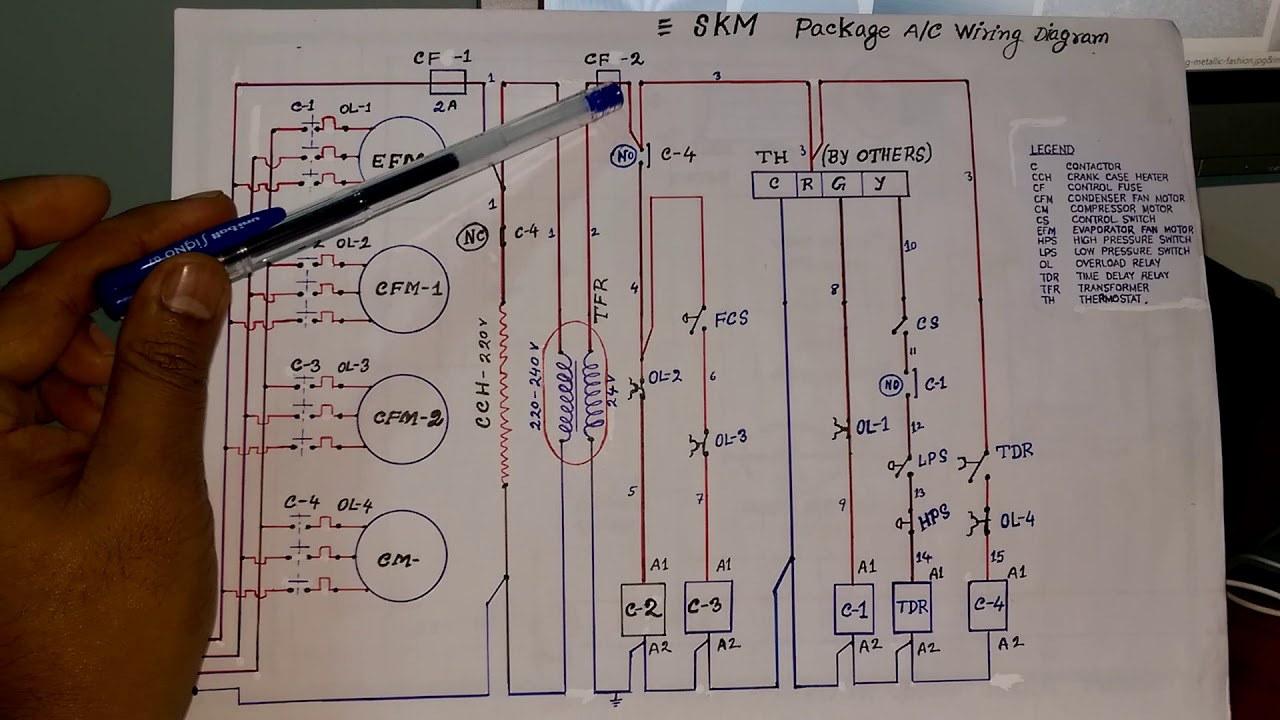 ≡ SKM Package A/C Wiring Diagram
g-metallic-fashion.jpg&im
CF -1
CF -2
1
3
2A
C-1
OL-1
NO
C-4
TH
3
(BY OTHERS)
LEGEND
C CONTACTOR
CCH CRANK CASE HEATER
CF CONTROL FUSE
CFM CONDENSER FAN MOTOR
CM COMPRESSOR MOTOR
CS CONTROL SWITCH
EFM EVAPORATOR FAN MOTOR
HPS HIGH PRESSURE SWITCH
LPS LOW PRESSURE SWITCH
OL OVERLOAD RELAY
TDR TIME DELAY RELAY
TFR TRANSFORMER
TH THERMOSTAT.
EFM
C R G Y
3
1
NC
C-4
1
2
10
OL-2
CFM-1
TFR
4
8
FCS
CS
11
CCH-220V
220-240V
24V
C-3
OL-3
CFM-2
OL-2
6
NO
C-1
OL-3
OL-1
12
LPS
TDR
5
7
9
13
HPS
OL-4
C-4
OL-4
CM-
14
15
A1
A1
A1
A1
A1
C-2
C-3
C-1
TDR
C-4
A2
A2
A2
A2
A2
uniball SIGNO 0.7